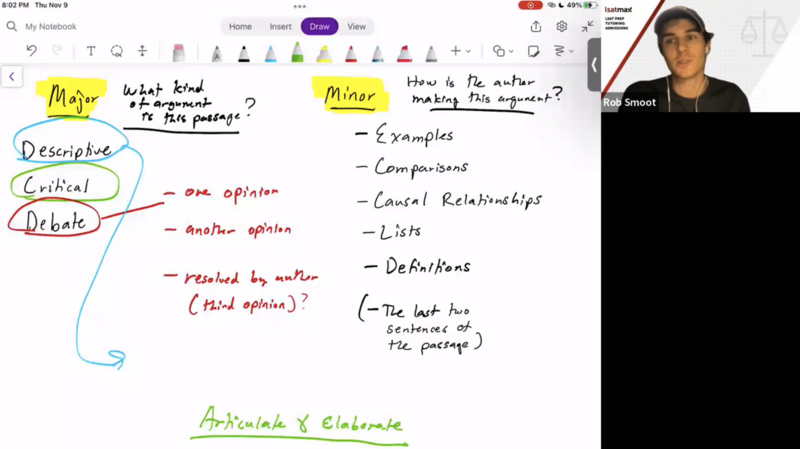 8:02 PM Thu Nov 9
49%
My Notebook
Home Insert Draw View
Major
What kind
of argument
is this passage?
Descriptive
Critical
Debate
- one opinion
- another opinion
- resolved by author
(third opinion)?
Minor
How is the author
making this argument?
- Examples
- Comparisons
- Causal Relationships
- Lists
- Definitions
(- The last two
sentences of
the passage)
Articulate & Elaborate
lsatmax
LSAT PREP
TUTORING
ADMISSIONS
Rob Smoot